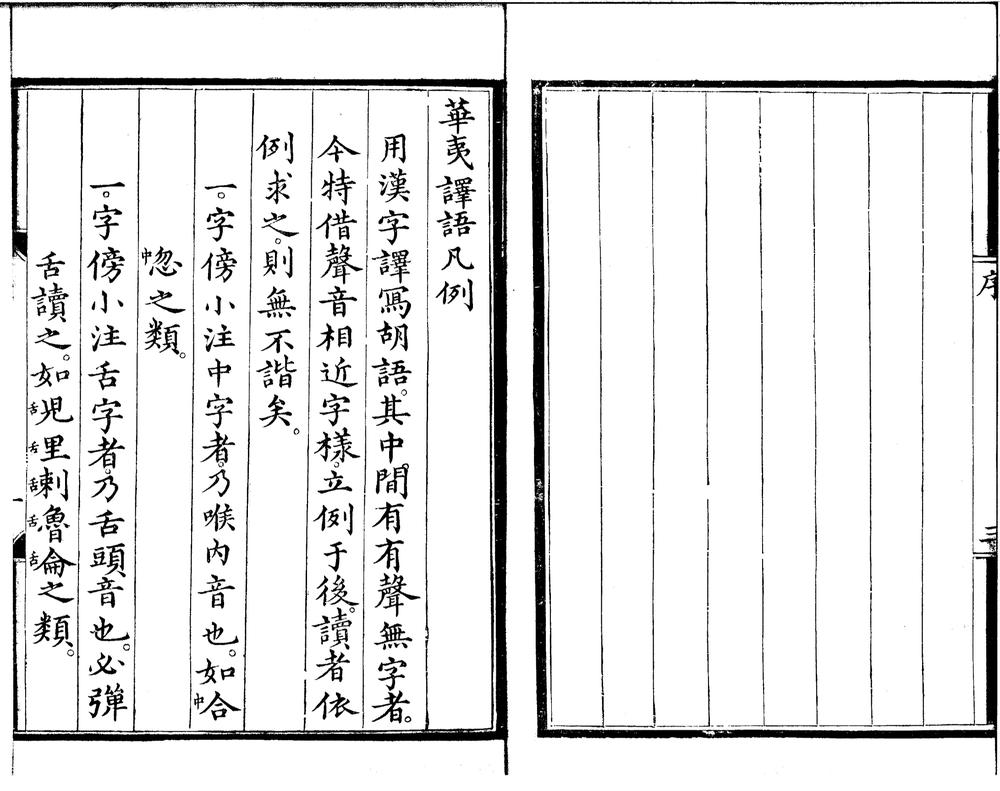 序
三
華夷譯語凡例
用漢字譯寫胡語。其中間有有聲無字者。
今特借聲音相近字樣。立例于後。讀者依
例求之。則無不諧矣。
一。字傍小注中字者。乃喉内音也。如中合
中忽之類。
一。字傍小注舌字者。乃舌頭音也。必彈
舌讀之。如舌児舌里舌剌舌魯舌侖之類。
一